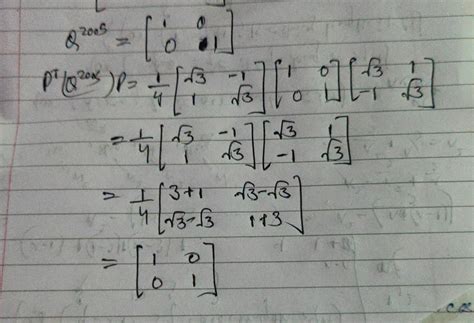 Q²⁰⁰⁵ = [1 0; 0 1]
Pᵀ(Q²⁰⁰⁵)P = 1/4 [√3 -1; 1 √3] [1 0; 0 1] [√3 1; -1 √3]
= 1/4 [√3 -1; 1 √3] [√3 1; -1 √3]
= 1/4 [3+1 √3-√3; √3-√3 1+3]
= [1 0; 0 1]